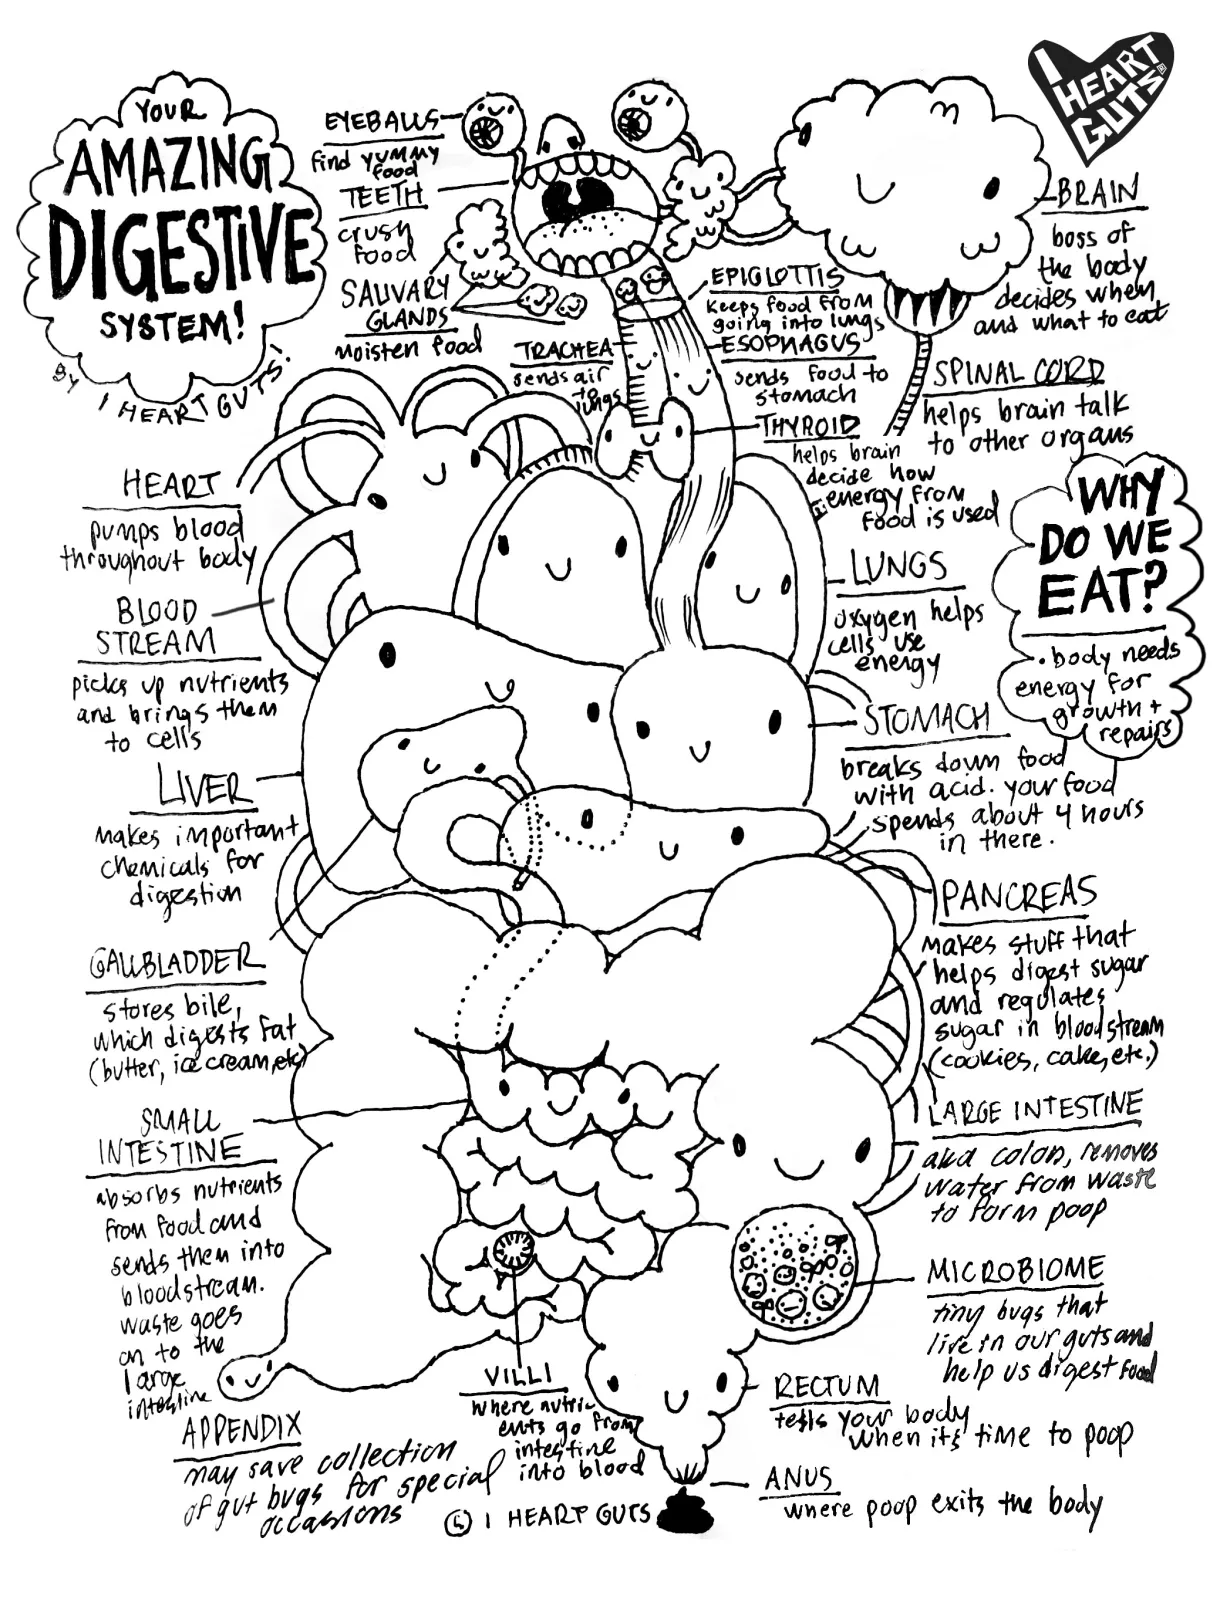 YOUR
AMAZING
DIGESTIVE
SYSTEM!
BY I HEART GUTS!
I
HEART
GUTS®
EYEBALLS
find yummy
food
TEETH
crush
food
SALIVARY
GLANDS
moisten food
TRACHEA
sends air
to
lungs
EPIGLOTTIS
keeps food from
going into lungs
ESOPHAGUS
sends food to
stomach
THYROID
helps brain
decide how
energy from
food is used
BRAIN
boss of
the body
decides when
and what to eat
SPINAL CORD
helps brain talk
to other organs
WHY
DO WE
EAT?
• body needs
energy for
growth +
repairs
HEART
pumps blood
throughout body
BLOOD
STREAM
picks up nutrients
and brings them
to cells
LIVER
makes important
chemicals for
digestion
GALLBLADDER
stores bile,
which digests fat
(butter, ice cream, etc)
SMALL
INTESTINE
absorbs nutrients
from food and
sends them into
bloodstream.
waste goes
on to the
large
intestine
APPENDIX
may save collection
of gut bugs for special
occasions
LUNGS
oxygen helps
cells use
energy
STOMACH
breaks down food
with acid. your food
spends about 4 hours
in there.
PANCREAS
makes stuff that
helps digest sugar
and regulates
sugar in bloodstream
(cookies, cake, etc.)
LARGE INTESTINE
aka colon, removes
water from waste
to form poop
MICROBIOME
tiny bugs that
live in our guts and
help us digest food
VILLI
where nutri-
ents go from
intestine
into blood
RECTUM
tells your body
when it's time to poop
ANUS
where poop exits the body
I HEART GUTS